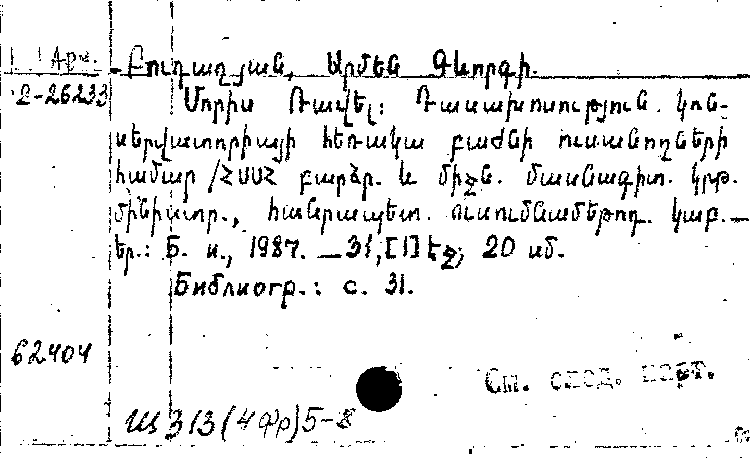 Арм.
Բուդաղյան, Արմեն Գևորգի.
2-26233
Մորիս Ռավել: Դասախոսություն. կոն-
սերվատորիայի հեռակա բաժնի ուսանողների
համար /ՀՍՍՀ բարձր. և միջն. մասնագիտ. կրթ.
մինիստր., հանրապետ. ուսումնամեթոդ. կաբ.—
Եր.: Б. и., 1987. —31,[1] էջ; 20 սմ.
Библиогр.: с. 31.
62404
См. след. карт.
Щ313(4Фр)5-8